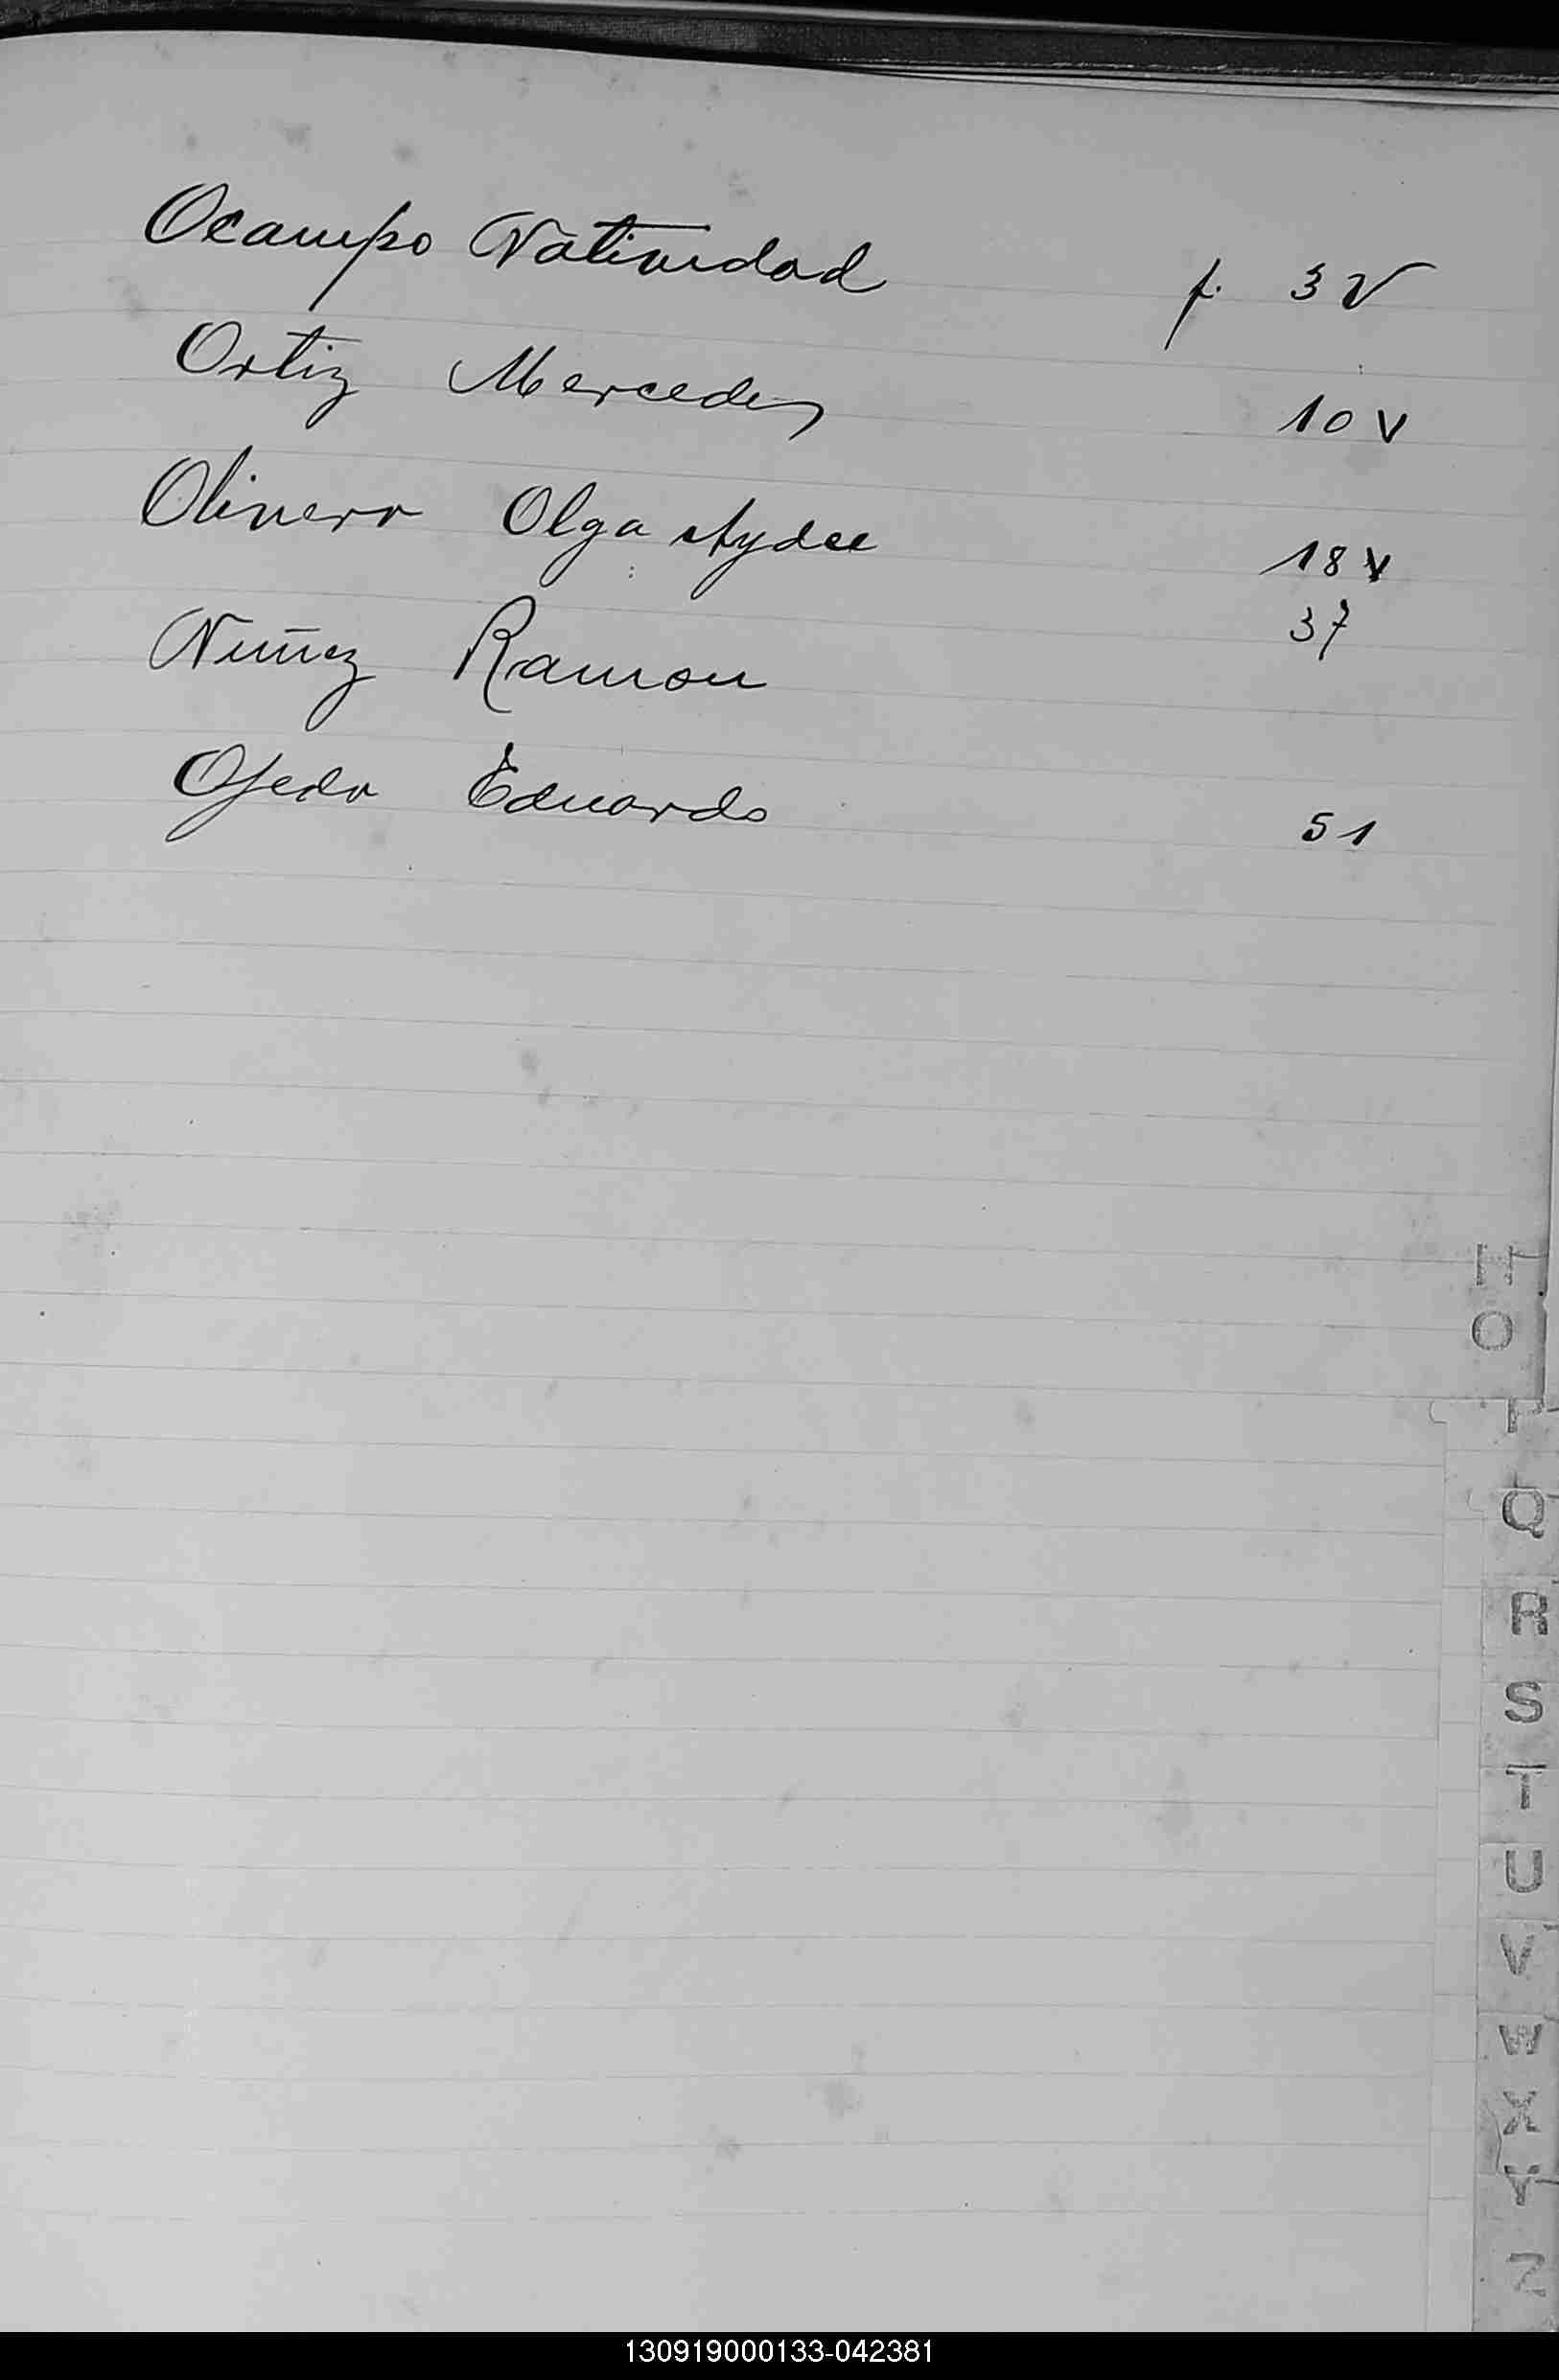 Ocampo Natividad f. 3 V
Ortiz Mercedes 10 V
Olivera Olga Aydee 18 V
Nuñez Ramon 37
Ojeda Eduardo 51
O
P
Q
R
S
T
U
V
W
X
Y
Z
130919000133-042381